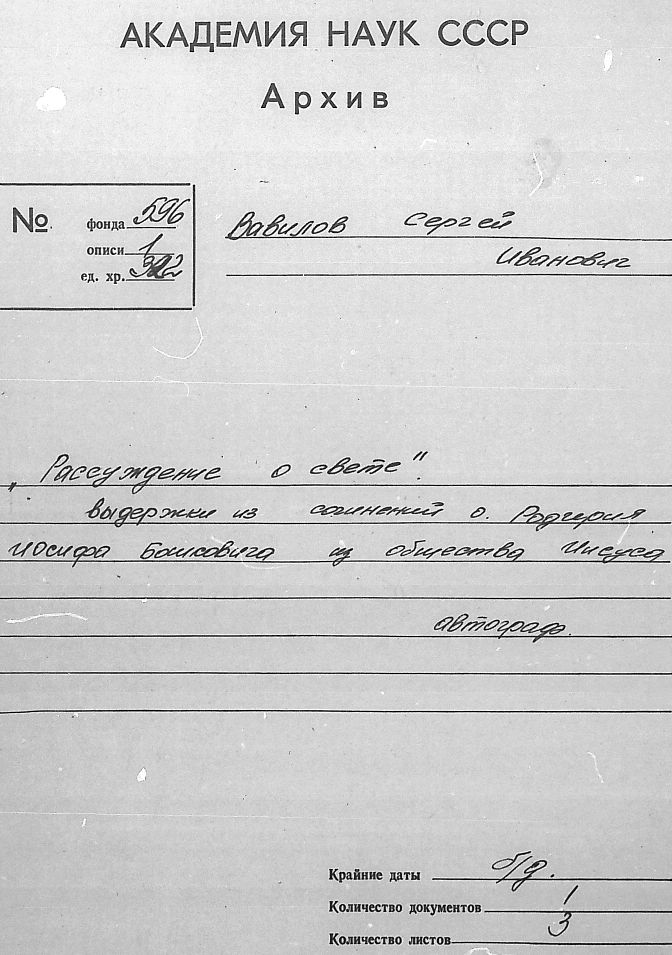 АКАДЕМИЯ НАУК СССР
Архив
№ фонда 596
описи 1
ед. хр.
Вавилов Сергей
Иванович
„Рассуждение о свете".
выдержки из сочинений о. Роджерия
Иосифа Бошковича из общества Иисуса
автограф.
Крайние даты б/д.
Количество документов 1
Количество листов 3